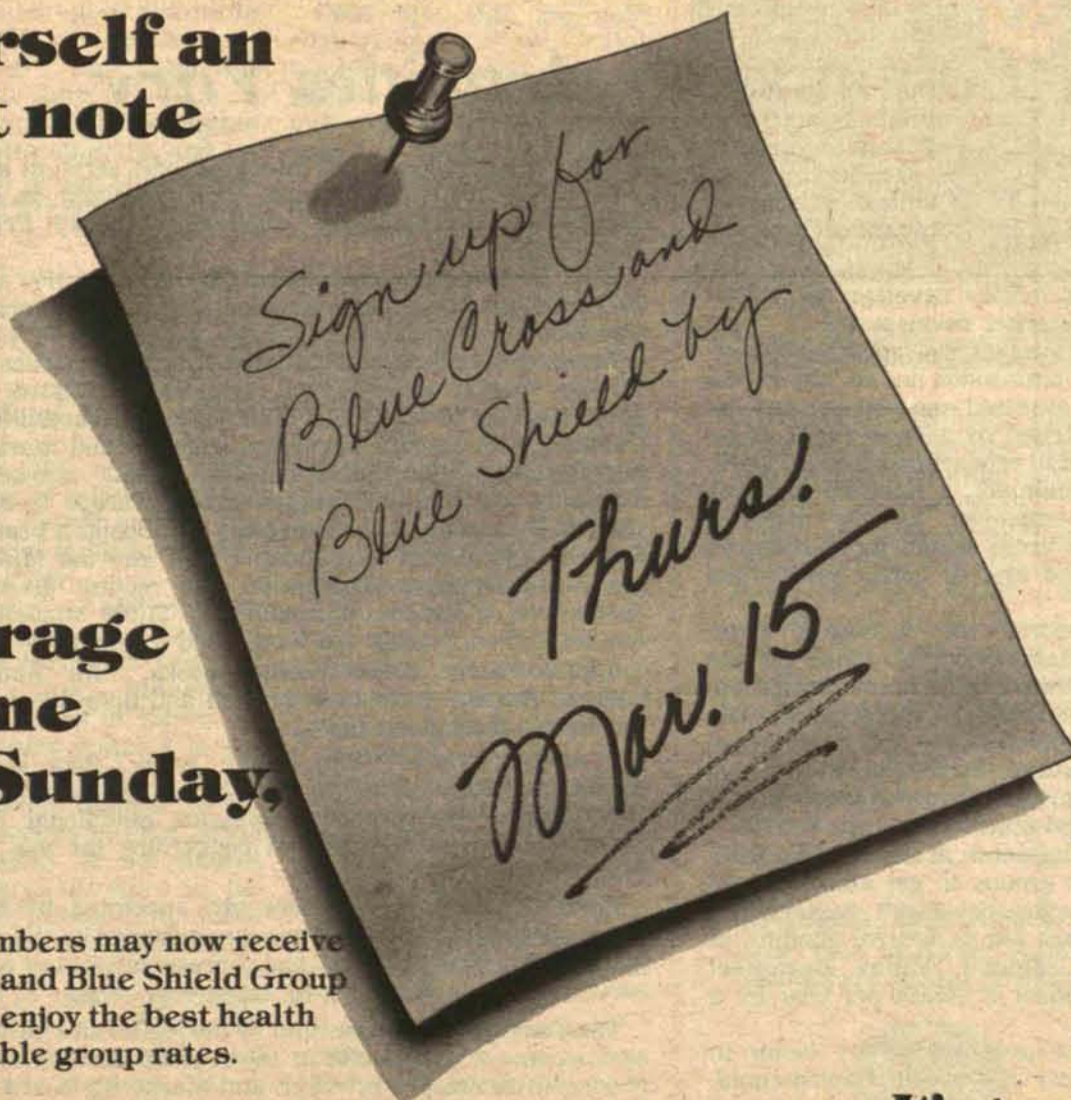 rself an
t note
Sign up for
Blue Cross and
Blue Shield by
Thurs.
Mar. 15
rage
ne
Sunday,
mbers may now receive
and Blue Shield Group
enjoy the best health
ble group rates.